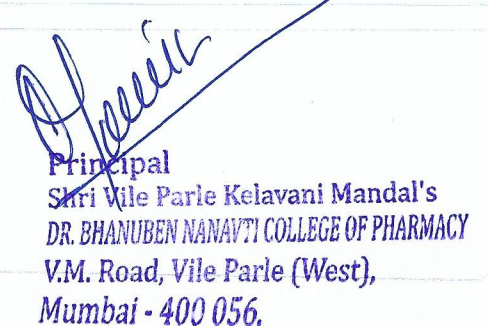 Principal
Shri Vile Parle Kelavani Mandal's
DR. BHANUBEN NANAVTI COLLEGE OF PHARMACY
V.M. Road, Vile Parle (West),
Mumbai - 400 056.